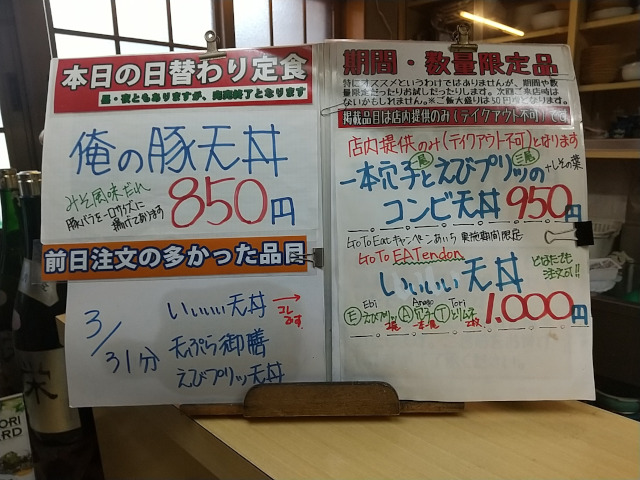 本日の日替わり定食
昼・夜ともありますが、完売終了となります
俺の豚天丼
みそ風味だれ
850円
前日注文の多かった品目
3/31分
いいいい天丼
→コレです
天ぷら御膳
えびプリッ天丼
期間・数量限定品
特にオススメというわけではありませんが、期間や数
量限定だったりお試しだったりします。次回ご来店時は
ないかもしれません。※ご飯大盛りは50円増となります。
掲載品目は店内提供のみ(テイクアウト不可)です
店内提供のみ(テイクアウト不可)となります
一本穴子と一尾えびプリッの三尾+しその葉
コンビ天丼 950円
Go To Eatキャンペーンあいち 実施期間限定
Go To EATendon
いいいい天丼
1,000円
Ebi Anago Tori
Ⓔえびプリッ2尾 Ⓐ穴子一本 Ⓣとりムネ2枚
栄